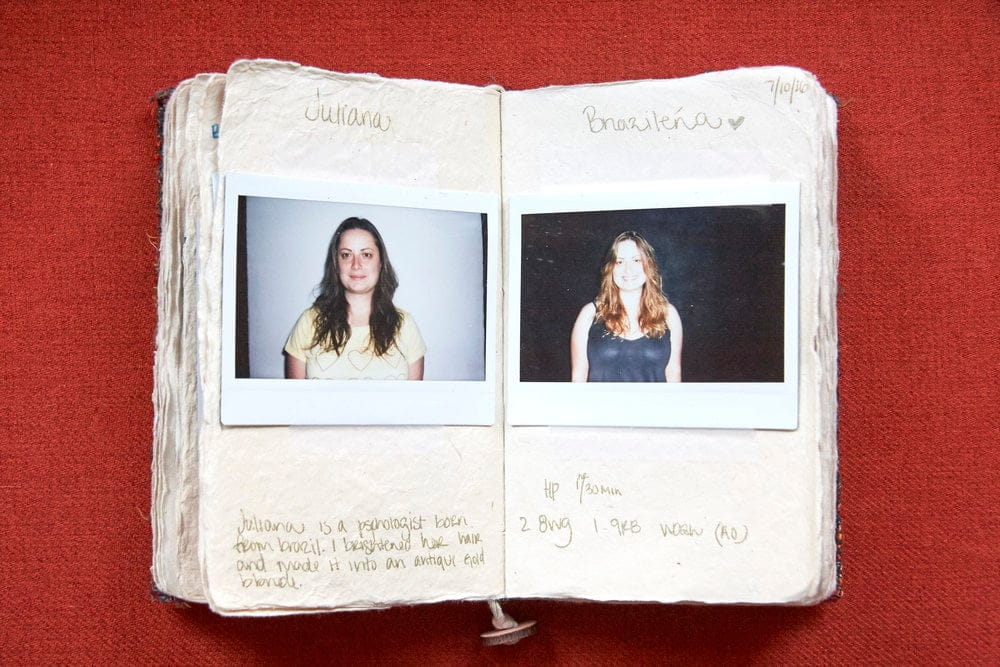 Juliana
Juliana is a pschologist born
from brazil. I brightened her hair
and made it into an antique gold
blonde.
7/10/16
Brazileña ♥
HP 1hr/30min
2 8wg 1.9RB wash (AO)